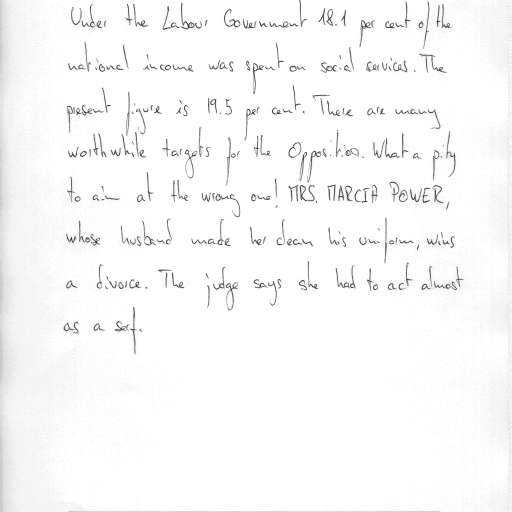 Under the Labour Government 18.1 per cent of the
national income was spent on social services. The
present figure is 19.5 per cent. There are many
worthwhile targets for the Opposition. What a pity
to aim at the wrong one! MRS. MARCIA POWER,
whose husband made her clean his uniform, wins
a divorce. The judge says she had to act almost
as a serf.